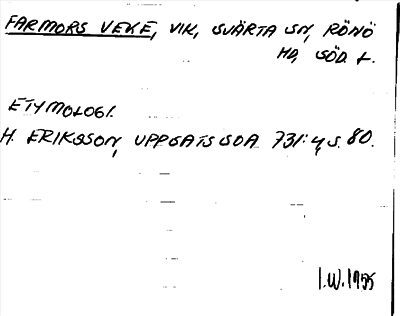 FARMORS VEKE, VIK, SVÄRTA SN, RÖNÖ
HD, SÖD. L.
ETYMOLOGI.
H. ERIKSSON, UPPSATS SOA 731:4, S. 80.
I.W. 1955